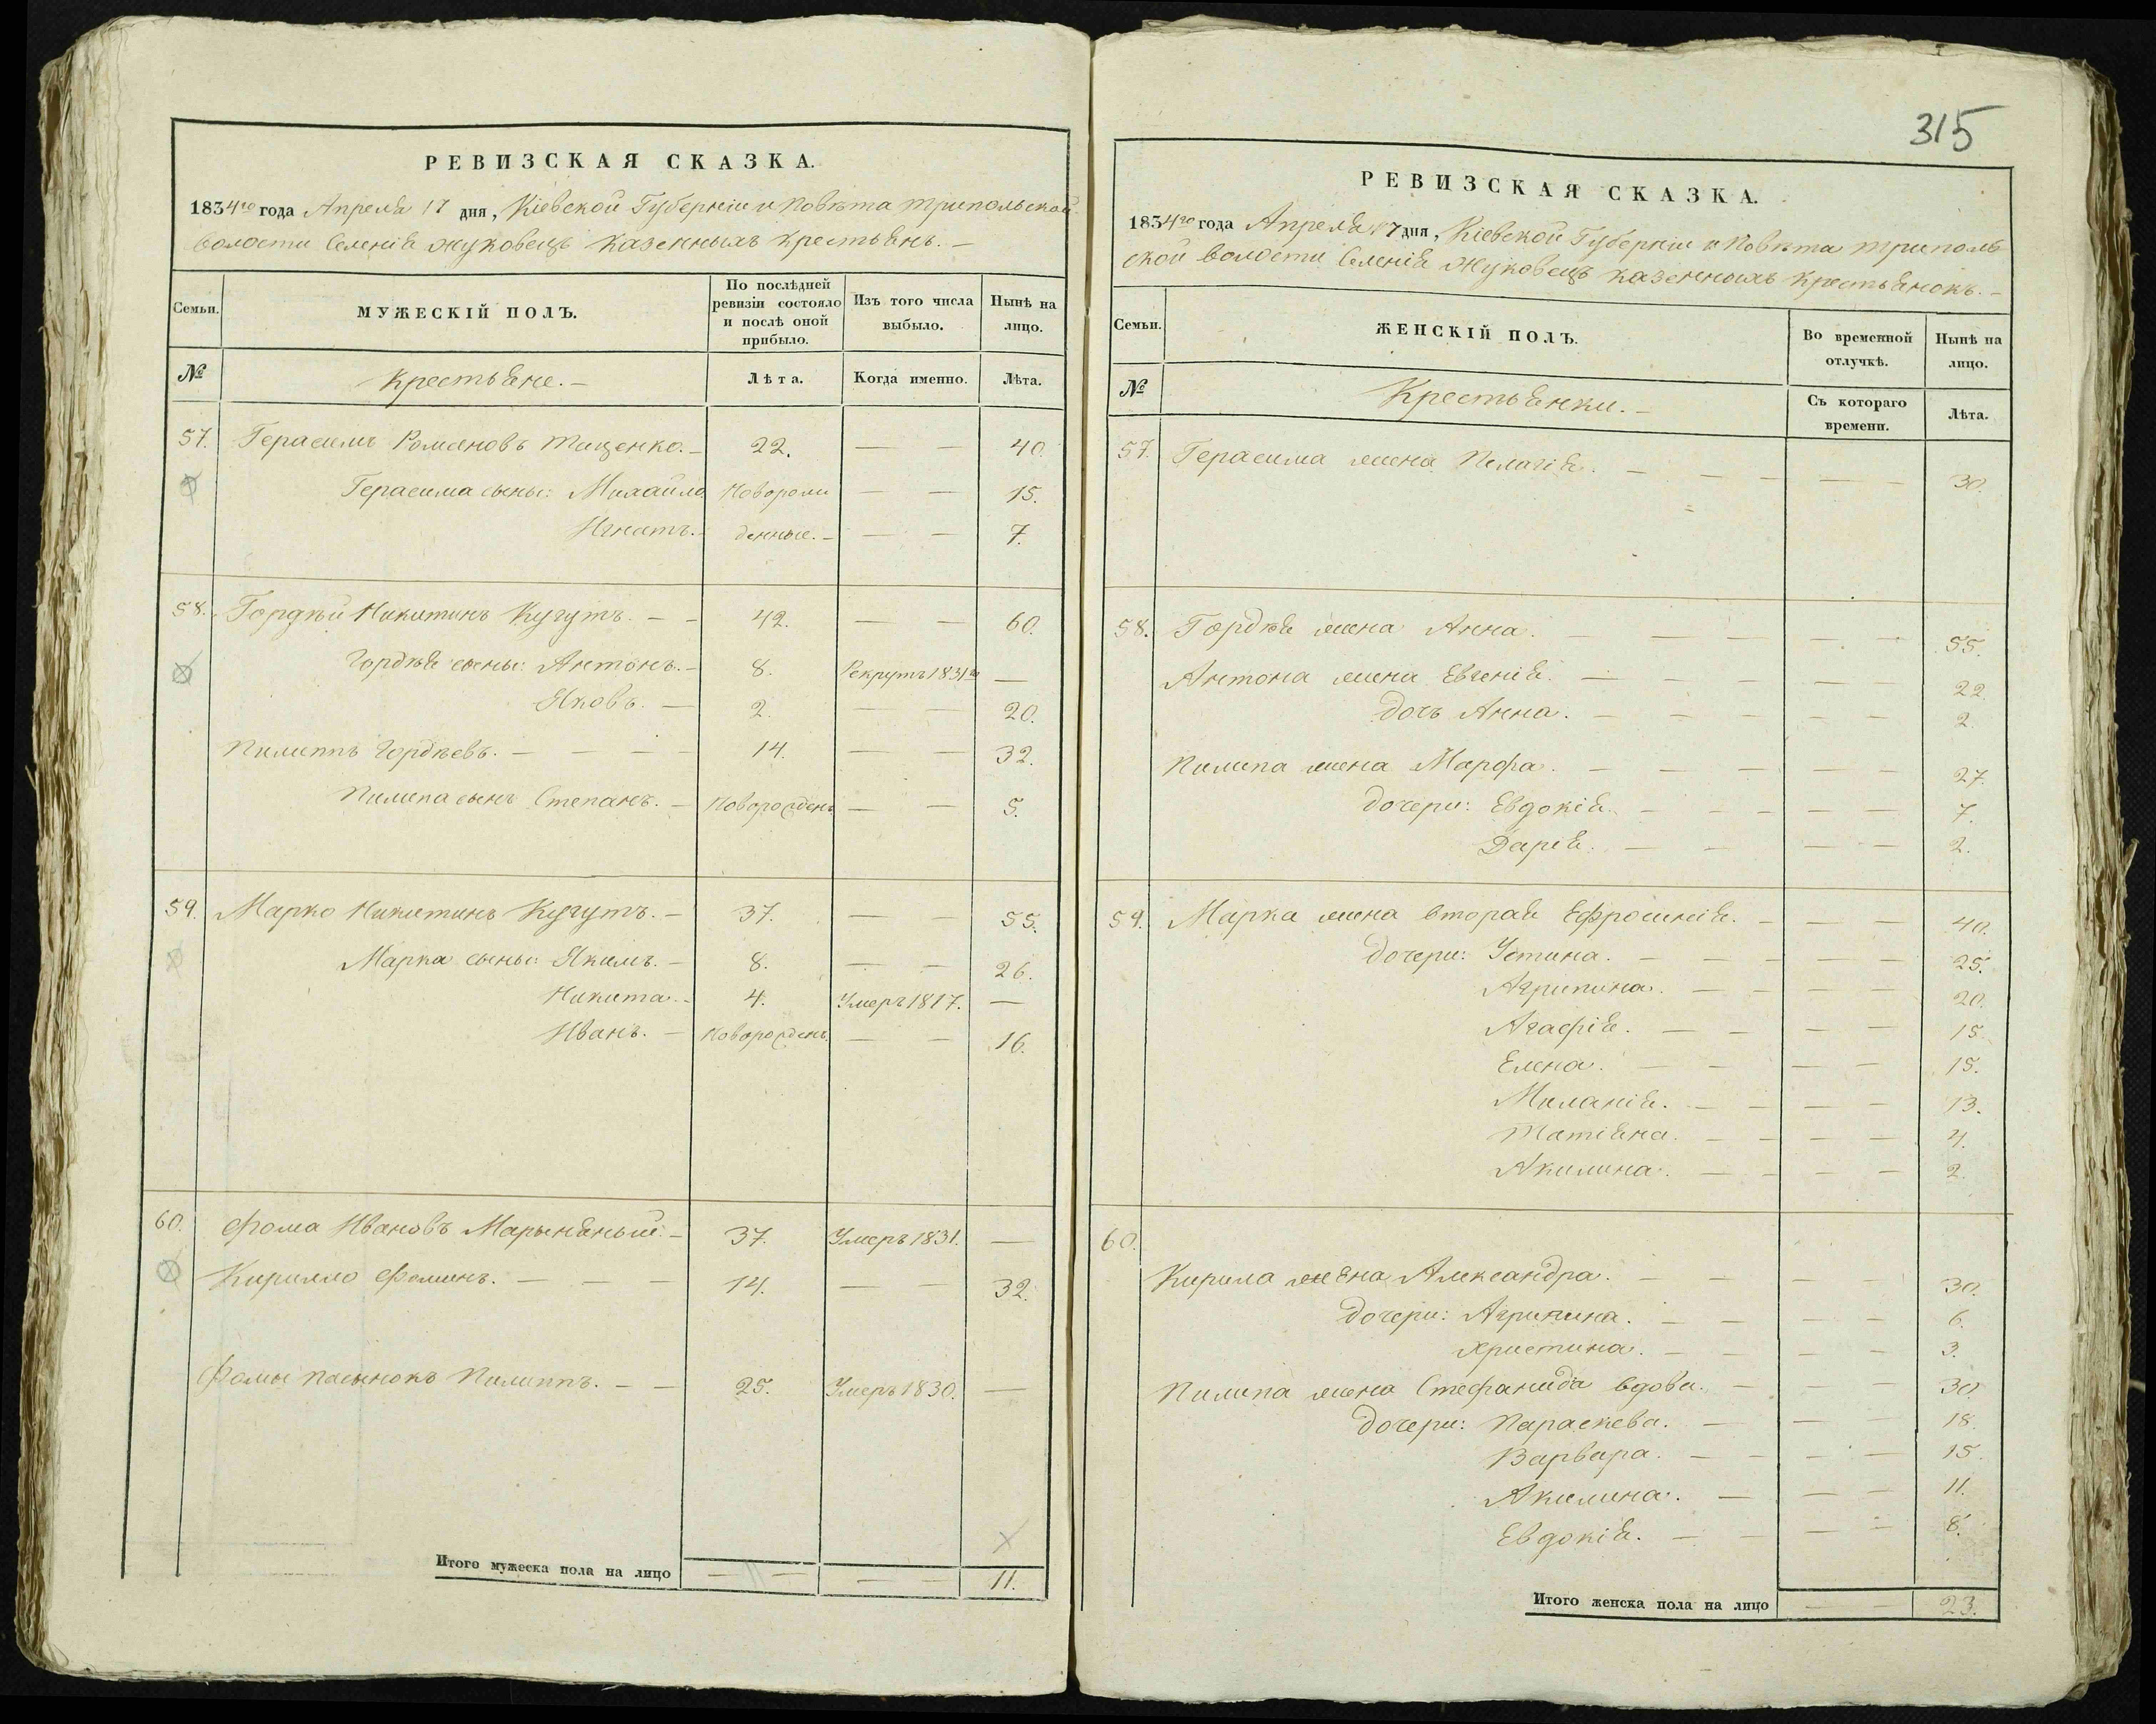 РЕВИЗСКАЯ СКАЗКА.
1834го года Апреля 17 дня, Кіевской Губерніи и Повѣта трипольской
волости Селенія Жуковецъ казенныхъ крестьянъ. —
Семьи. МУЖЕСКІЙ ПОЛЪ. По послѣдней ревизіи состояло и послѣ оной прибыло. Изъ того числа выбыло. Нынѣ на лицо.
№ Крестьяне. — Лѣта. Когда именно. Лѣта.
57. Герасимъ Романовъ Тащенко. — 22. — — 40.
Герасима сыны: Михайло. Новорож — — 15.
Игнатъ. — денные. — — — 7.
58. Гордѣй Никитинъ Кугутъ. — — 42. — — 60.
Гордѣя сыны: Антонъ. — 8. Рекрутъ 1831го —
Яковъ. — 2. — — 20.
Пилиппъ Гордѣевъ. — — — — 14. — — 32.
Пилипа сынъ Степанъ. — Новорожденъ — — 5.
59. Марко Никитинъ Кугутъ. — 37. — — 55.
Марка сыны: Якимъ. — 8. — — 26.
Никита. — 4. Умеръ 1817. —
Иванъ. — Новорожденъ. — — 16.
60. Фома Ивановъ Марыняный. — 37. Умеръ 1831. —
Кирилло Фоминъ. — — — 14. — — 32.
Фомы пасынокъ Пилиппъ. — — 25. Умеръ 1830. —
Итого мужеска пола на лицо — — — — 11.
315
РЕВИЗСКАЯ СКАЗКА.
1834го года Апреля 17 дня, Кіевской Губерніи и Повѣта триполь
ской волости Селенія Жуковецъ казенныхъ крестьянокъ. —
Семьи. ЖЕНСКІЙ ПОЛЪ. Во временной отлучкѣ. Нынѣ на лицо.
№ Крестьянки. — Съ котораго времени. Лѣта.
57. Герасима жена Пелагія. — — — — — — 30.
58. Гордѣя жена Анна. — — — — — — 55.
Антона жена Евгенія. — — — — — 22.
дочь Анна. — — — — — — 2.
Пилипа жена Марфа. — — — — — — 27.
дочери: Евдокія. — — — — — 7.
Дарія. — — — — 2.
59. Марка жена вторая Ефросинія. — — — 40.
дочери: Устина. — — — — — 25.
Агрипина. — — — — 20.
Агафія. — — — — 15.
Елена. — — — — 15.
Миланія. — — — — 13.
Татіяна. — — — — 4.
Акилина. — — — — 2.
60.
Кирила жена Александра. — — — — 30.
дочери: Агрипина. — — — — 6.
Христина. — — — — 3.
Пилипа жена Стефанида вдова. — — — 30.
дочери: Параскева. — — 18.
Варвара. — — — — 15.
Акилина. — — — 11.
Евдокія. — — — — 8.
Итого женска пола на лицо — — 23.